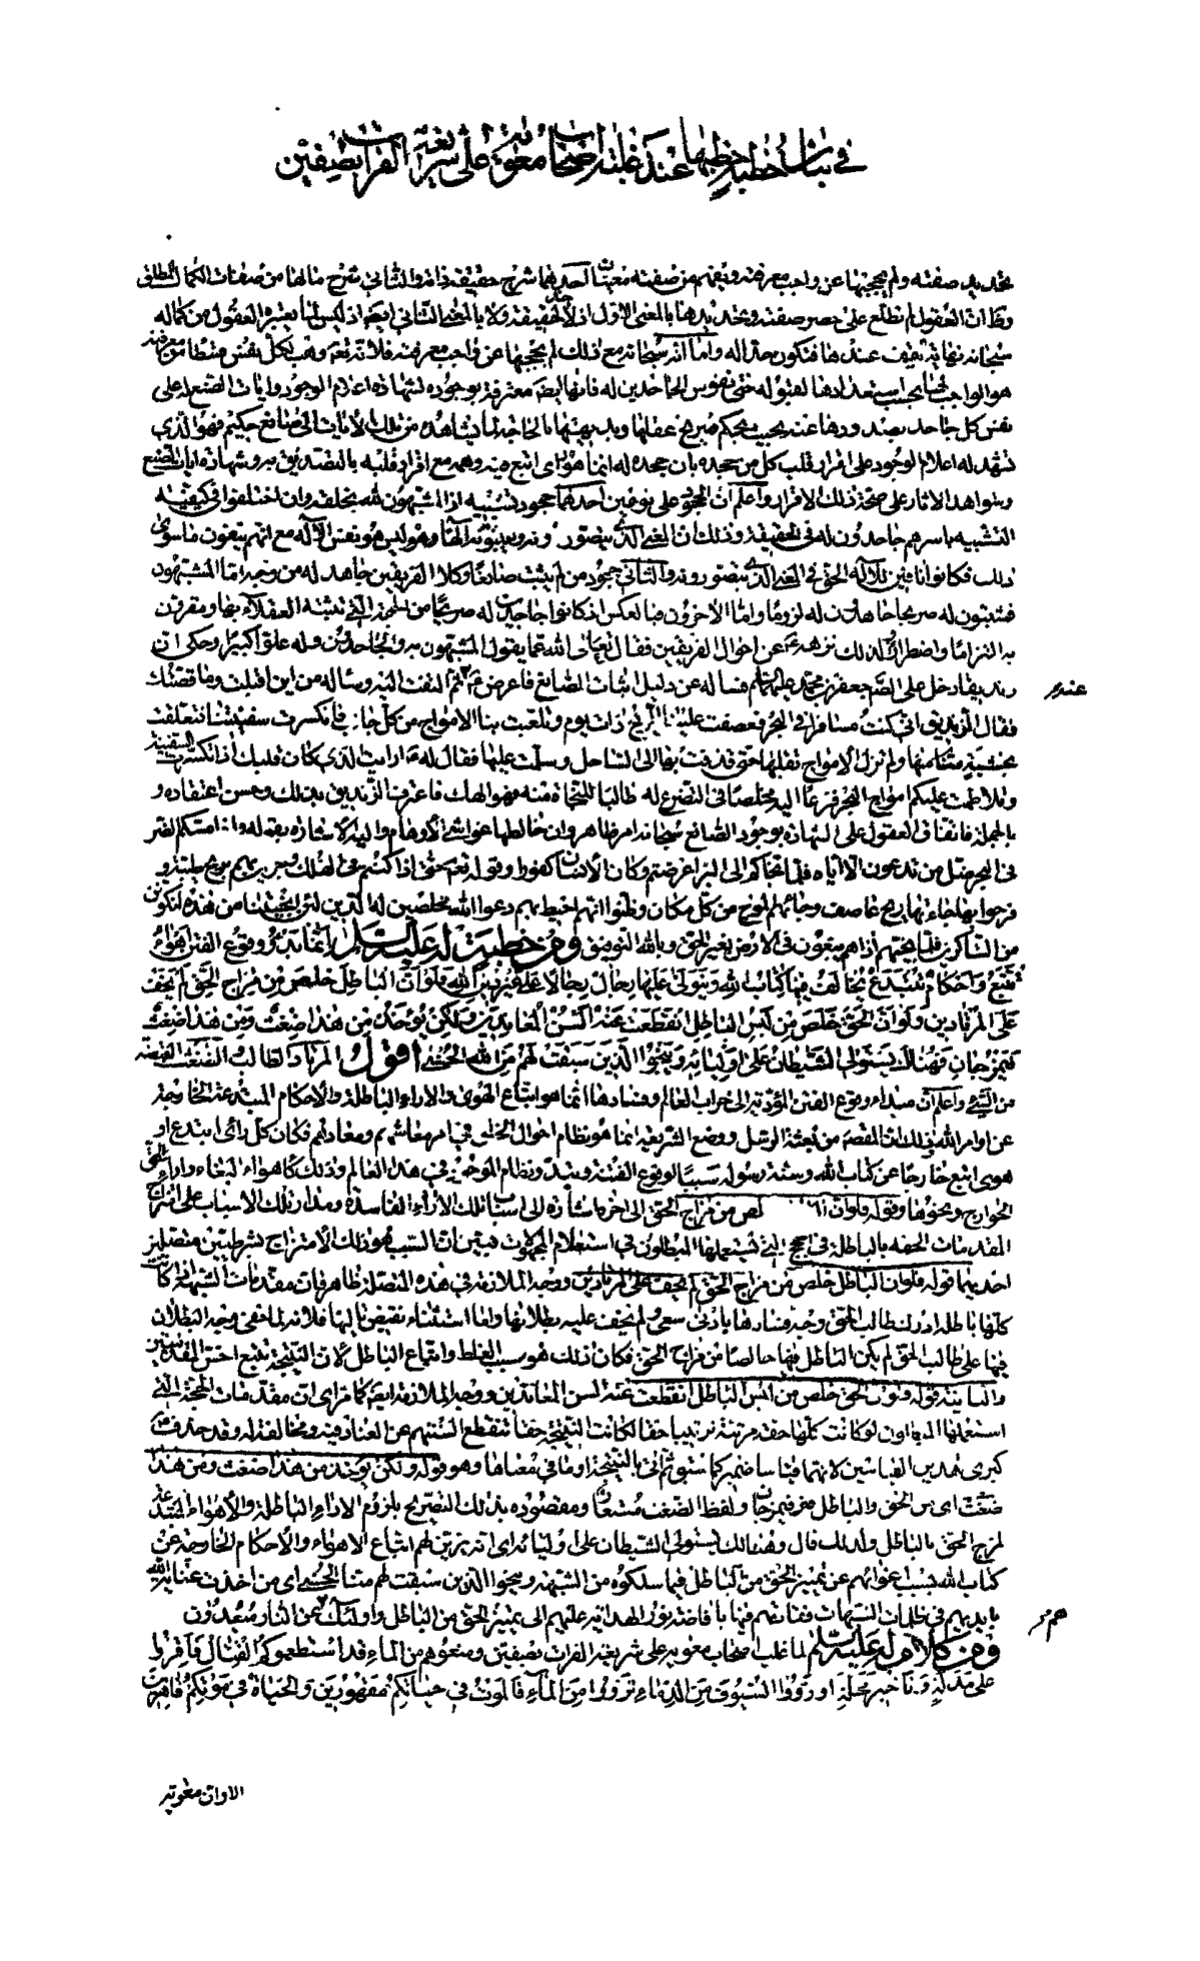 في بيان خطبة خطبها عند غلبة اصحاب معوية على شريعة الفرات بصفين
تحديد صفته ولم يحجبها عن واجب معرفته ويفهم من صفته معنيان احدهما شرح حقيقة ذاته والثاني شرح مالها من صفات الكمال المطلق
وظ ان العقول لم تطلع على حصر صفته وتحديدها بالمعنى الاول اذ لا حد لحقيقته ولا بالمعنى الثاني ايضا اذ ليس لما يعتبره العقول من كماله
سبحانه نهاية تقف عندها فتكون حدا له واما انه سبحانه مع ذلك لم يحجبها عن واجب معرفته فلانه تعه وهب لكل نفس قسطا من معرفته
هو الواجب لها بحسب استعدادها لقبوله حتى نفوس الجاحدين له فانها ايضا معترفة بوجوده لشهادة اعلام الوجود وايات الصنع له على
نفس كل جاحد بصدورها عنه بحيث يحكم صريح عقلها وبديهتها بالحاجة لما تشاهده من تلك الايات الى صانع حكيم فهو الذي
تشهد له اعلام الوجود على اقرار قلب كل من جحده بان جحده له انما هو راى اتبع فيه وهمه مع اقرار قلبه بالتصديق به وشهادة ايات الصنع
وشواهد الاثار على صحة ذلك الاقرار واعلم ان الجحود على نوعين احدهما جحود تشبيه اذ المشبهون لله بخلقه وان اختلفوا في كيفية
التشبيه باسرهم جاحدون له في الحقيقة وذلك ان المعنى الذي يتصورونه ويثبتونه الها وهو ليس هو نفس الاله مع انهم ينفون ما سوى
ذلك فكانوا نافين للاله الحق في المعنى الذي يتصورونه والثاني جحود من لم يثبت صانعا وكلا الفريقين جاهد له من وجه اما المشبهون
فمثبتون له صريحا جاحدون له لزوما واما الاخرون فبالعكس اذ كانوا جاحدين له صريحا من الجهة التي تثبته العقلاء بها ومقرون
به التزاما واضطرارا ولذلك نزهه عن احوال الفريقين فقال تعالى الله عما يقول المشبهون به والجاحدون له علوا كبيرا وحكي ان
زنديقا دخل على الصم جعفر بن محمد عليهما السلم فساله عن دليل اثبات الصانع فاعرض عم عنه ثم التفت اليه وساله من اين اقبلت وما قصتك
فقال الزنديق اني كنت مسافرا في البحر فعصفت علينا الريح ذات يوم وتلعبت بنا الامواج من كل جانب فانكسرت سفينتنا فتعلقت
بخشبة منها ولم تزل الامواج تقلبها حتى قذفت بها الى الساحل وسلمت عليها فقال له عم ارايت الذي كان قلبك اذ انكسرت السفينة
وتلاطمت عليكم امواج البحر فزعا اليه مخلصا في التضرع له طالبا للنجاة منه فهو الهك فاعترف الزنديق بذلك وحسن اعتقاده و
بالجملة فاتفاق العقول على الشهادة بوجود الصانع سبحانه امر ظاهر وان خالطها غواشي الاوهام واليه الاشارة بقوله واذا مسكم الضر
في البحر ضل من تدعون الا اياه فلما نجاكم الى البر اعرضتم وكان الانسان كفورا وقوله تعه حتى اذا كنتم في الفلك وجرين بهم بريح طيبة و
فرحوا بها جاءتها ريح عاصف وجاءهم الموج من كل مكان وظنوا انهم احيط بهم دعوا الله مخلصين له الدين لئن انجيتنا من هذه لنكونن
من الشاكرين فلما نجيهم اذا هم يبغون في الارض بغير الحق وبالله التوفيق ومن خطبة له عليه السلم انما بدؤ وقوع الفتن اهواء
تتبع واحكام تبتدع يخالف فيها كتاب الله ويتولى عليها رجال رجالا على غير دين الله فلو ان الباطل خلص من مزاج الحق لم يخف
على المرتادين ولو ان الحق خلص من لبس الباطل انقطعت عنه السن المعاندين ولكن يؤخذ من هذا ضغث ومن هذا ضغث
فيمزجان فهنالك يستولي الشيطان على اوليائه وينجوا الذين سبقت لهم من الله الحسنى اقول المرتاد الطالب الضغث القبضة
من الشئ واعلم ان مبدء وقوع الفتن المؤدية الى خراب العالم وفساده انما هو اتباع الهوى والاراء الباطلة والاحكام المبتدعة الخارجة
عن اوامر الله وذلك ان المقصود من بعثة الرسل ووضع الشريعة انما هو نظام احوال الخلق في امر معاشهم ومعادهم فكان كل راى ابتدع او
هوى اتبع خارجا عن كتاب الله وسنة رسوله سببا لوقوع الفتنة وتبدد نظام الموجود في هذا العالم وذلك كاهواء البغاة واراء
الخوارج ونحوها وقوله فلو ان لص من مزاج الحق الى اخره اشارة الى اسباب تلك الاراء الفاسدة ومدار تلك الاسباب على امتزاج
المقدمات الحقه بالباطلة في الحجج التي يستعملها المبطلون في استعلام المجهولات فبين ان السبب هو ذلك الامتزاج بشرطيتين متصلتين
احديهما قوله فلو ان الباطل خلص من مزاج الحق لم يخف على المرتادين ووجه الملازمة في هذه المتصلة ظاهر فان مقدمات الشبهة اذا كانت
كلها باطلة ادرك طالب الحق وجه فسادها بادنى سعي ولم يخف عليه بطلانها واما استثناء نقيض تاليها فلانه لما خفى وجه البطلان
فيها على طالب الحق لم يكن الباطل فيها خالصا من مزاج الحق فكان ذلك هو سبب الغلط واتباع الباطل لان النتيجة تتبع اخس المقدمتين
والثانية قوله ولو ان الحق خلص من لبس الباطل انقطعت عنه السن المعاندين ووجه الملازمة ايضا كما مر اى ان مقدمات الحجة التي
استعملها المبطلون لو كانت كلها حقة مرتبة ترتيبا حقا لكانت النتيجة حقا تنقطع السنتهم عن العناد فيه والمخالفة له وقد حذف عم
كبرى هذين القياسين لانهما قياسا ضمير كما سبق ثم اتى بالنتيجة او ما في معناها وهو قوله ولكن يؤخذ من هذا ضغث ومن هذا
ضغث اى من الحق والباطل فيمزجان ولفظ الضغث مستعار ومقصوده بذلك التصريح بلزوم الاراء الباطلة والاهواء المبتدعة
لمزج الحق بالباطل ولذلك قال وهنالك يستولي الشيطان على اوليائه اى انه يزين لهم اتباع الاهواء والاحكام الخارجة عن
كتاب الله بسبب اغوائهم عن تمييز الحق من الباطل فيما سلكوه من الشبهة وينجوا الذين سبقت لهم منا الحسنى اى من اخذت عناية الله
بايديهم في ظلمات الشبهات فقادتهم فيها بافاضة نور الهداية عليهم الى تمييز الحق من الباطل واولئك عن النار مبعدون
ومن كلام له عليه السلم لما غلب اصحاب معوية على شريعة الفرات بصفين ومنعوهم من الماء قد استطعموكم القتال فاقروا
على مذلة وتاخير محلة او رووا السيوف من الدماء ترووا من الماء فالموت في حياتكم مقهورين والحياة في موتكم قاهرين
عنه
هم
الا وان معوية